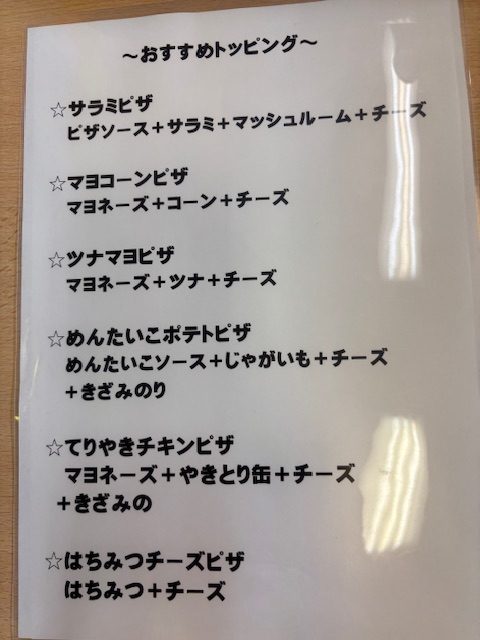 ～おすすめトッピング～
☆サラミピザ
ピザソース＋サラミ＋マッシュルーム＋チーズ
☆マヨコーンピザ
マヨネーズ＋コーン＋チーズ
☆ツナマヨピザ
マヨネーズ＋ツナ＋チーズ
☆めんたいこポテトピザ
めんたいこソース＋じゃがいも＋チーズ
＋きざみのり
☆てりやきチキンピザ
マヨネーズ＋やきとり缶＋チーズ
＋きざみの
☆はちみつチーズピザ
はちみつ＋チーズ